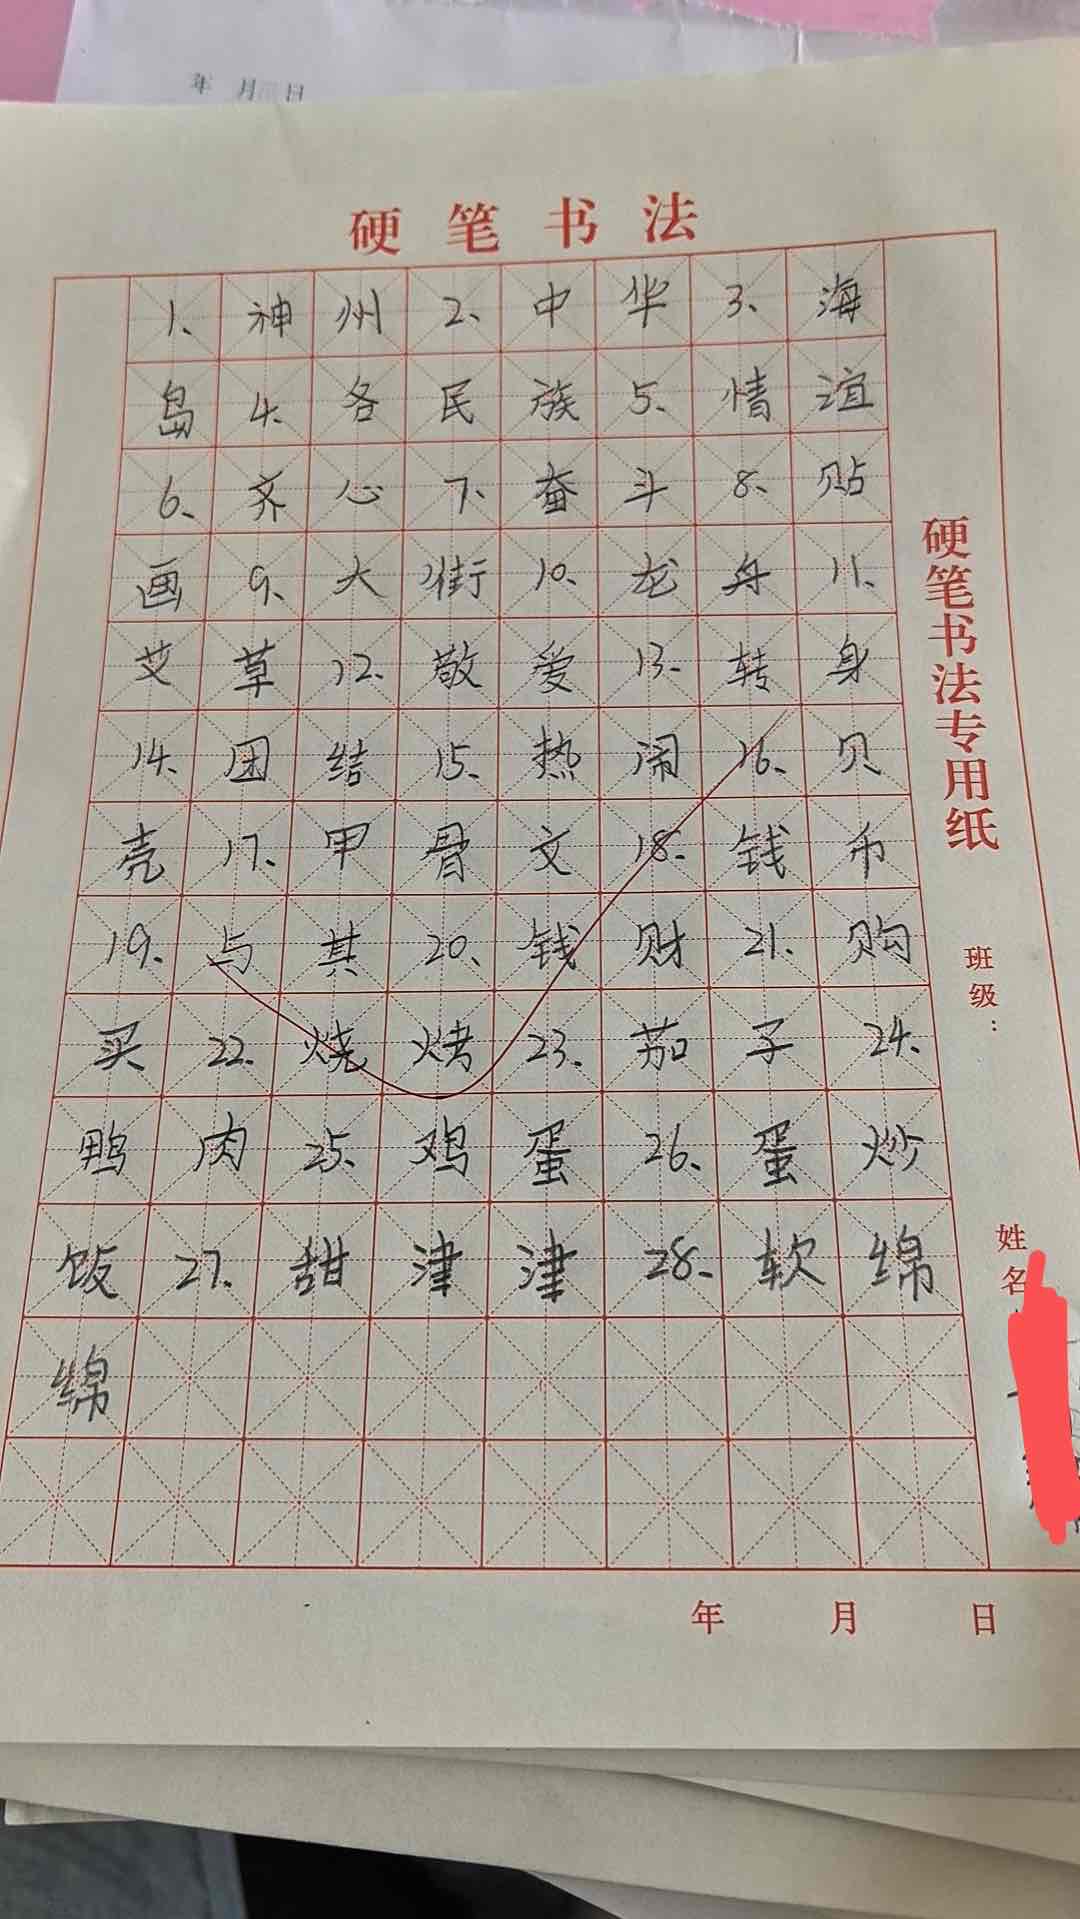 年 月 日
硬笔书法
1、神州2、中华3、海
岛4、各民族5、情谊
6、齐心7、奋斗8、贴
画9、大街10、龙舟11、
艾草12、敬爱13、转身
14、团结15、热闹16、贝
壳17、甲骨文18、钱币
19、与其20、钱财21、购
买22、烧烤23、茄子24、
鸭肉25、鸡蛋26、蛋炒
饭27、甜津津28、软绵
绵
硬笔书法专用纸
班级：
姓名
年 月 日